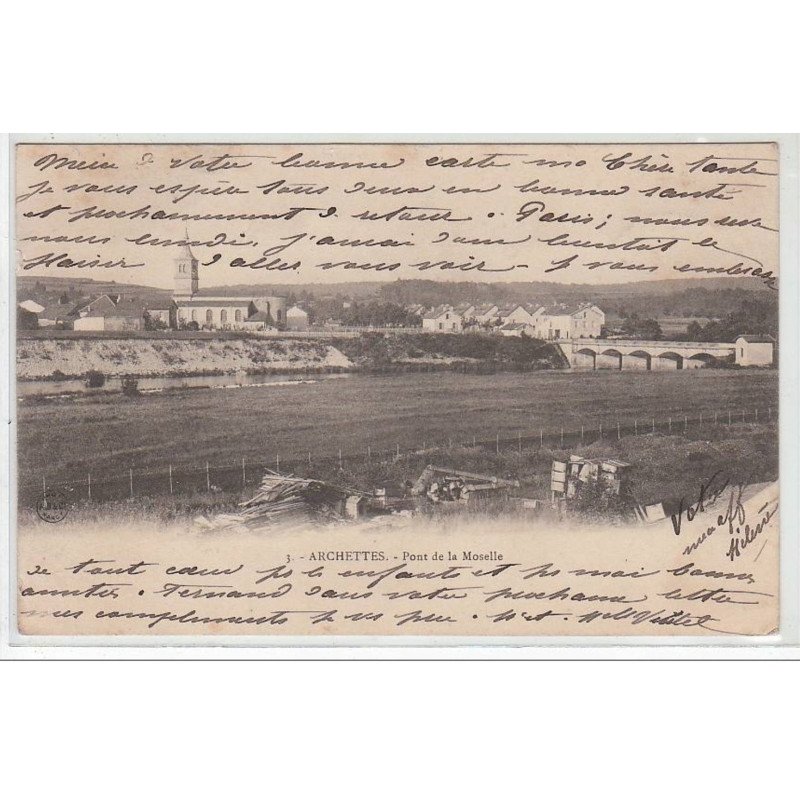 Merci de votre bonne carte ma Chère tante
je vous espère tous deux en bonne santé
et prochainement de retour à Paris; nous
nous J'aurai donc bientôt le
plaisir d'aller vous voir je vous embrasse
3. - ARCHETTES. - Pont de la Moselle
Votre
nièce aff
Hélène
de tout cœur les enfants et
amitiés Fernand dans votre prochaine lettre
mes compliments à M. et Mlle